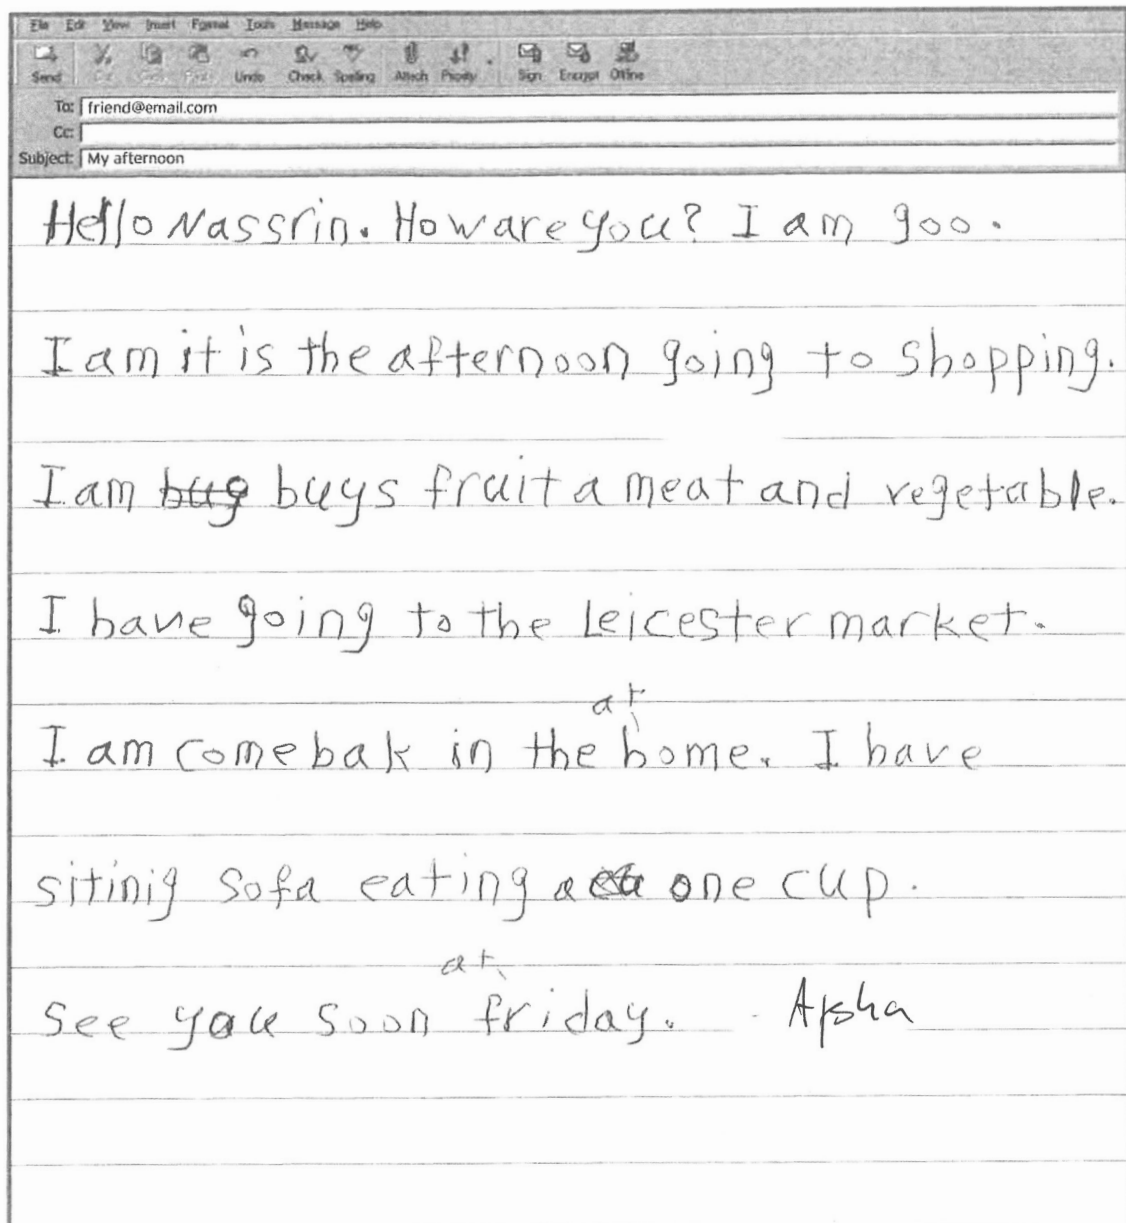 File Edit View Insert Format Tools Message Help
Send Cut Copy Paste Undo Check Spelling Attach Priority Sign Encrypt Offline
To: friend@email.com
Cc:
Subject: My afternoon
Hello Nassrin. How are you? I am goo.
I am it is the afternoon going to shopping.
I am bug buys fruit a meat and vegetable.
I have going to the Leicester market.
at
I am come bak in the home. I have
sitinig sofa eating a one cup.
at
See you soon friday. Aisha